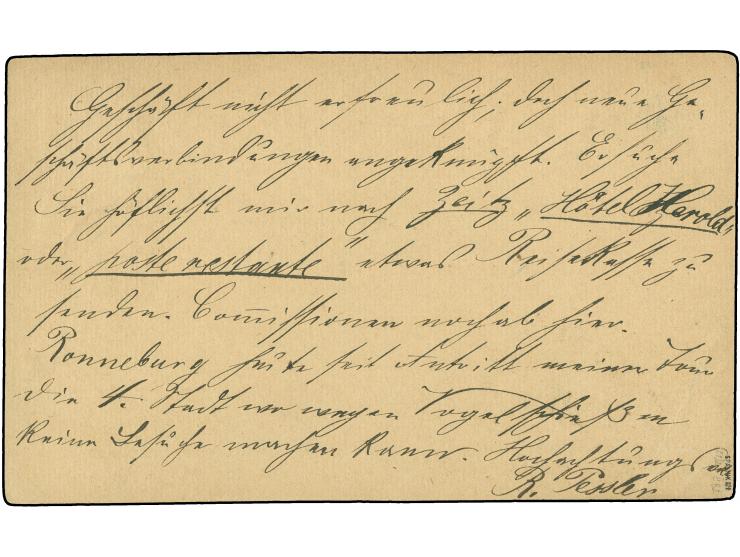 Geschäft nicht erfreulich; doch neue Ge-
schäftsverbindungen angeknüpft. Ersuche
Sie höflichst mir nach Zeitz „Hôtel Herold"
oder „poste restante" etwas Reisekasse zu
senden. Com̅issionen noch ab hier.
Ronneburg heute seit Antritt meiner Tour
die 4. Stadt wo wegen Vogelschießen
keine Besuche machen kann. Hochachtungsvoll
R. Pessler